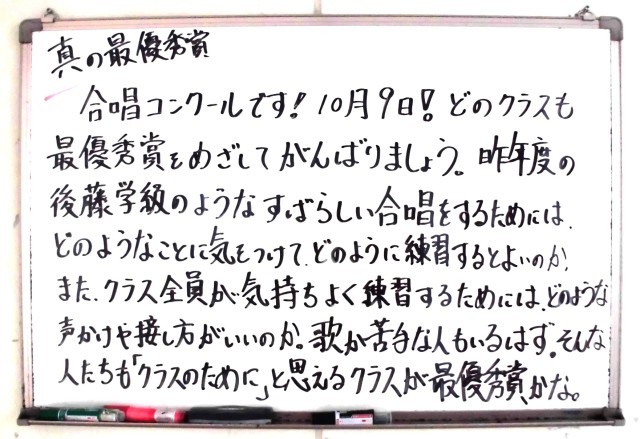 真の最優秀賞
合唱コンクールです!10月9日!どのクラスも
最優秀賞をめざしてがんばりましょう。昨年度の
後藤学級のようなすばらしい合唱をするためには、
どのようなことに気をつけて、どのように練習するとよいのか。
また、クラス全員が気持ちよく練習するためには、どのような
声かけや接し方がいいのか。歌が苦手な人もいるはず。そんな
人たちも「クラスのために」と思えるクラスが最優秀賞かな。